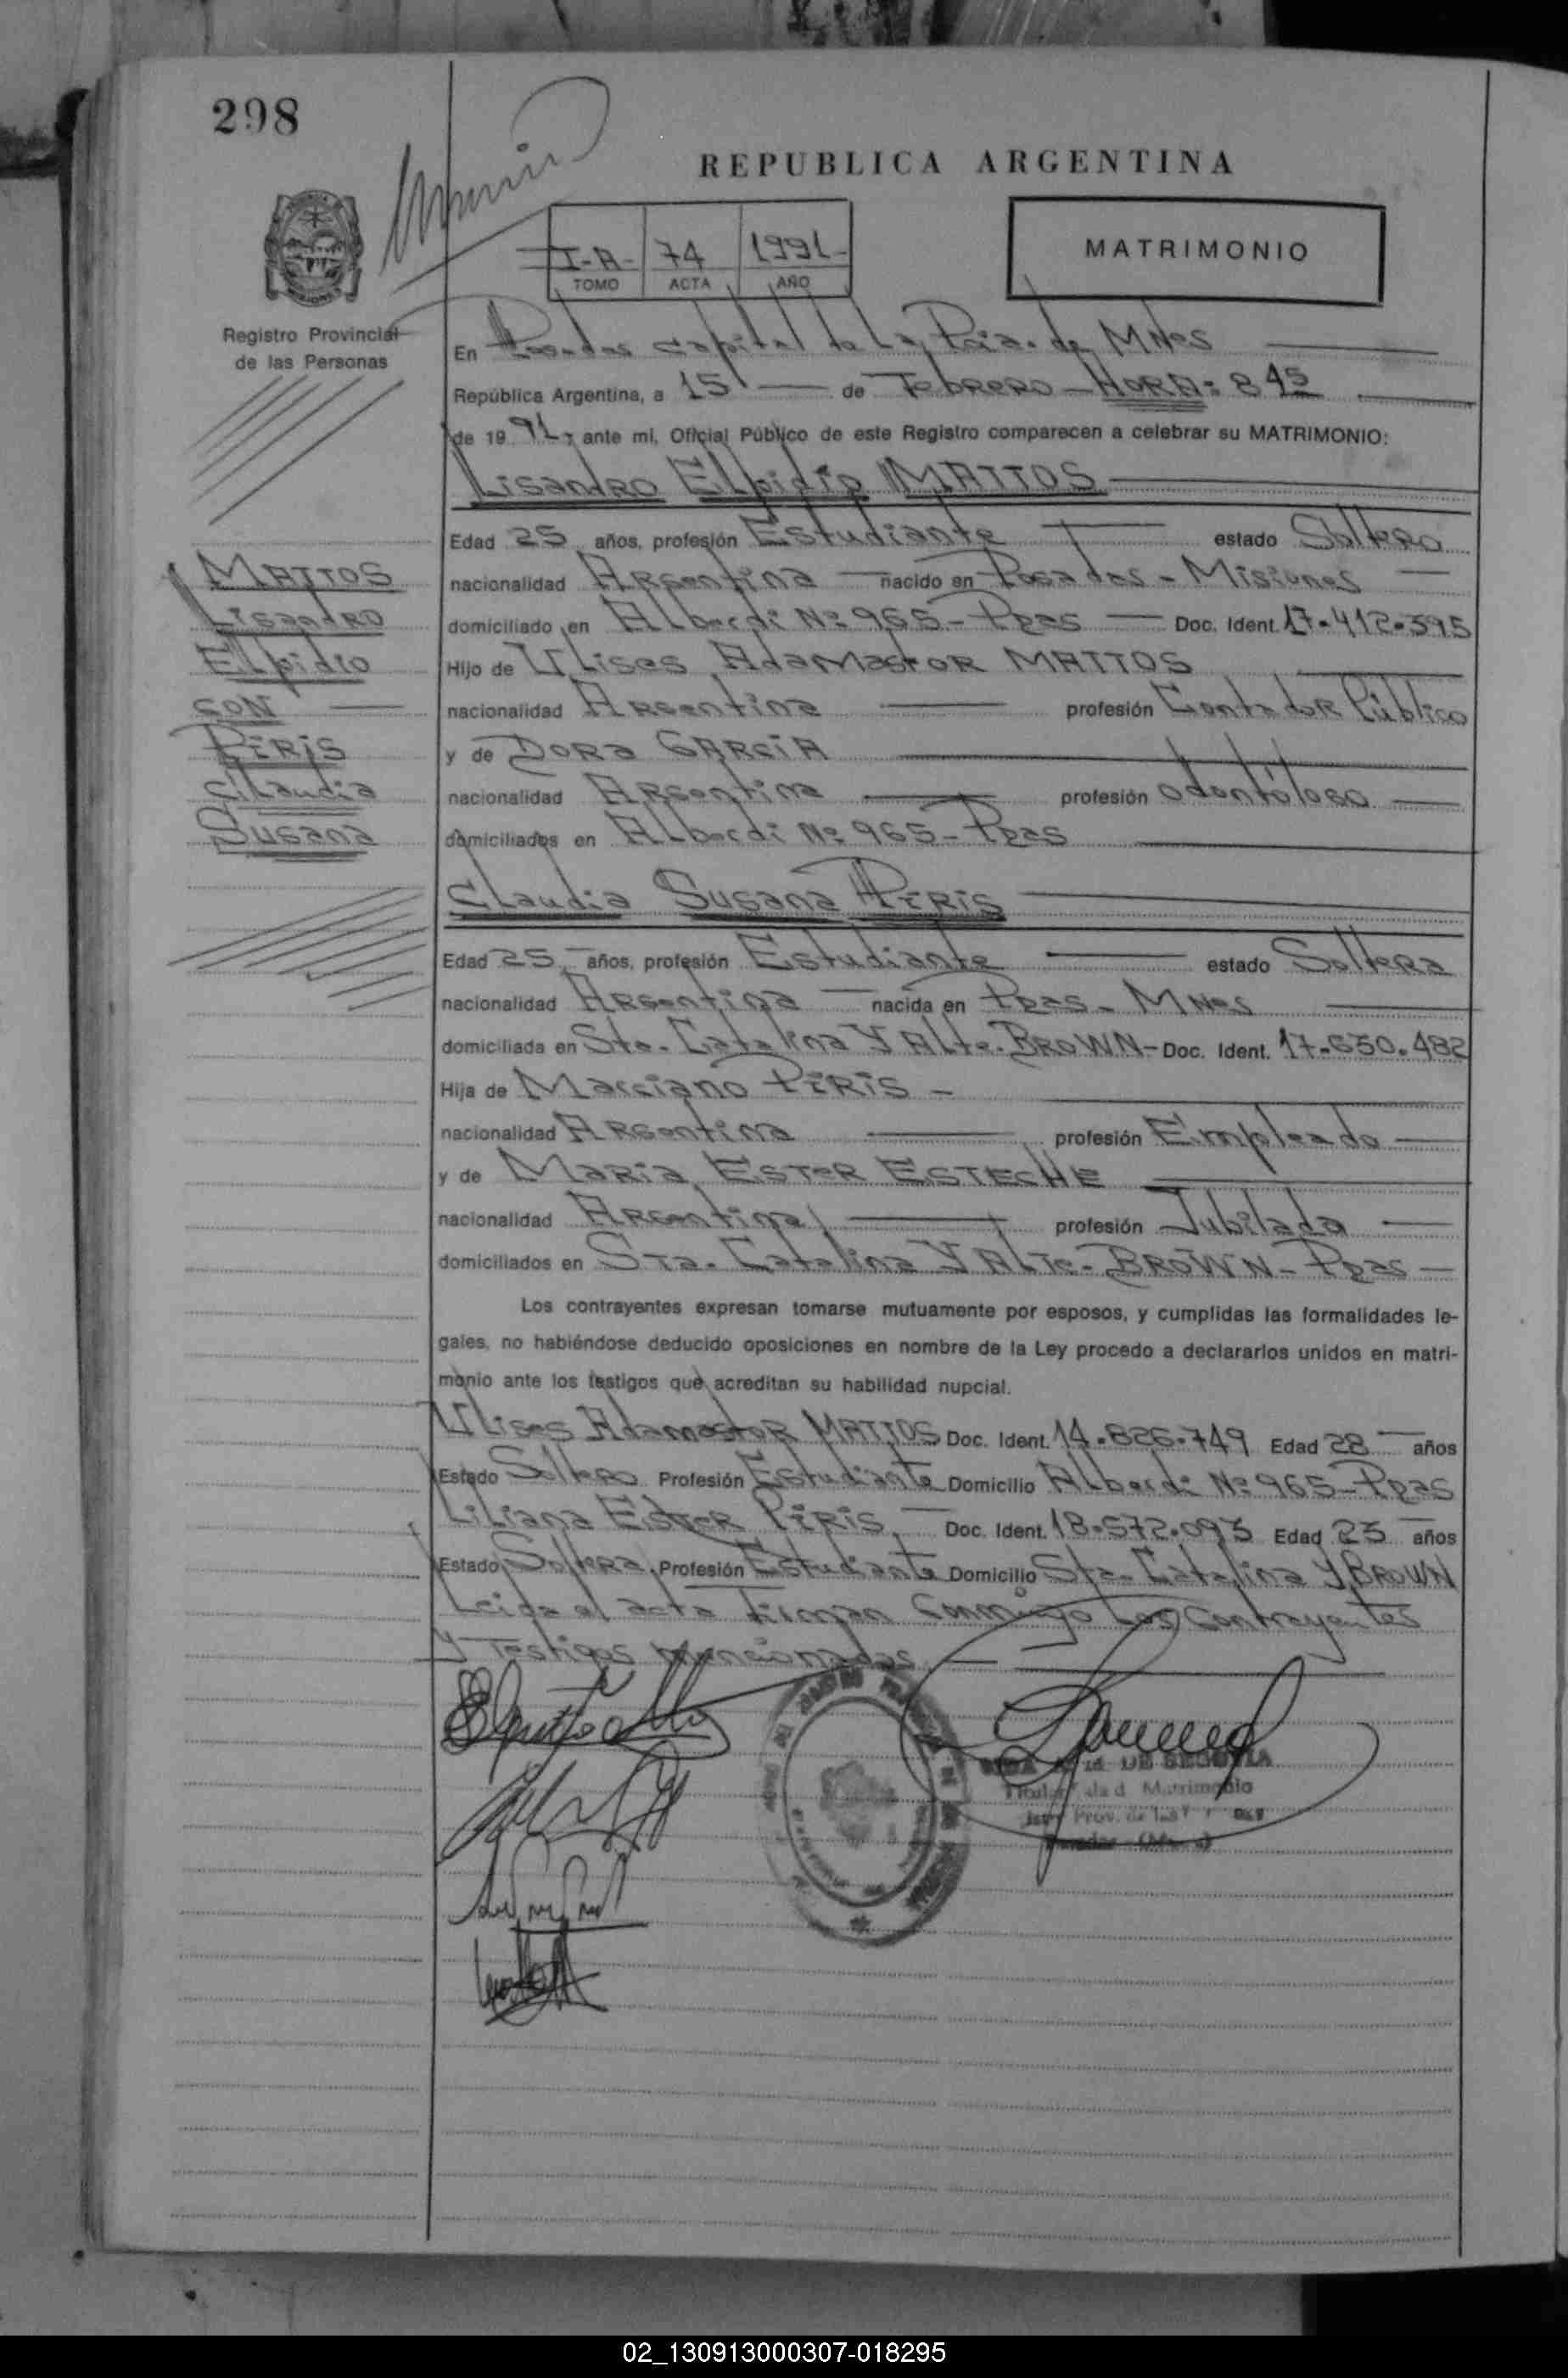 298
REPUBLICA ARGENTINA
I-A- 74 1991-
TOMO ACTA AÑO
MATRIMONIO
Registro Provincial
de las Personas
En Posadas capital de La Pcia. de MNes
República Argentina, a 15 de Febrero - HORA: 8 45
de 1991- ante mi, Oficial Público de este Registro comparecen a celebrar su MATRIMONIO:
Lisandro Elpidio MATTOS
Edad 25 años, profesión Estudiante estado Soltero
nacionalidad Argentina nacido en Posadas - Misiones
domiciliado en Alberdi Nº 965 - Pdas Doc. Ident. 17.412.395
Hijo de Ulises Adamastor MATTOS
nacionalidad Argentina profesión Contador Público
y de Dora GARCIA
nacionalidad Argentina profesión odontólogo
domiciliados en Alberdi Nº 965 - Pdas
MATTOS
Lisandro
Elpidio
CON
PIRIS
Claudia
Susana
Claudia Susana PIRIS
Edad 25 años, profesión Estudiante estado Soltera
nacionalidad Argentina nacida en Pdas - MNes
domiciliada en Sta. Catalina Y Alte. BROWN - Doc. Ident. 17.630.482
Hija de Marciano PIRIS -
nacionalidad Argentina profesión Empleado
y de Maria Ester ESTECHE
nacionalidad Argentina profesión Jubilada
domiciliados en Sta. Catalina Y Alte. BROWN - Pdas -
Los contrayentes expresan tomarse mutuamente por esposos, y cumplidas las formalidades le-
gales, no habiéndose deducido oposiciones en nombre de la Ley procedo a declararlos unidos en matri-
monio ante los testigos que acreditan su habilidad nupcial.
Ulises Adamastor MATTOS Doc. Ident. 14.826.749 Edad 28 años
Estado Soltero Profesión Estudiante Domicilio Alberdi Nº 965 - Pdas
Liliana Ester PIRIS Doc. Ident. 18.572.093 Edad 23 años
Estado Soltera Profesión Estudiante Domicilio Sta. Catalina Y BROWN
Leida el acta Firman Conmigo Los Contrayentes
y Testigos mencionados
DE SEGOVIA
Matrimonio
Prov. de las
02_130913000307-018295